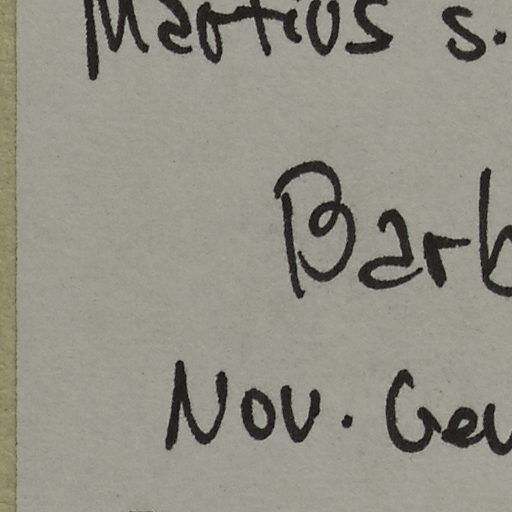 Martius s.
Barb
Nov. Gen